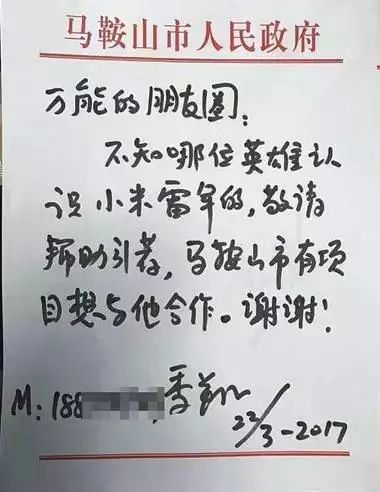 马鞍山市人民政府
万能的朋友圈：
不知哪位英雄认
识小米雷军的，敬请
帮助引荐，马鞍山市有项
目想与他合作。谢谢！
M：188 季翔
22/3-2017